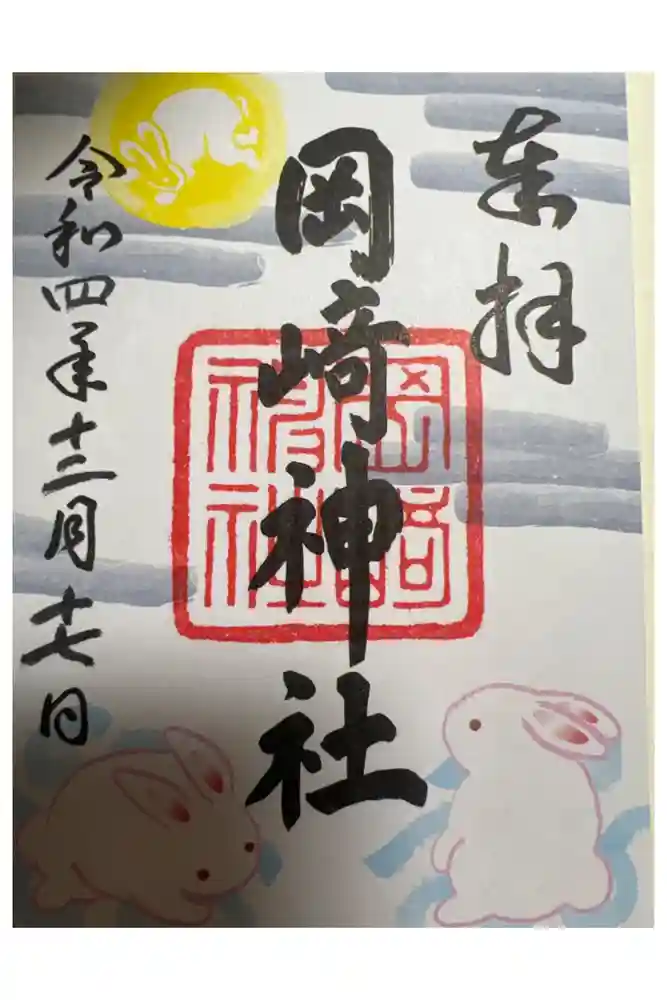 奉拝
岡崎神社
岡崎神社
令和四年十二月十七日